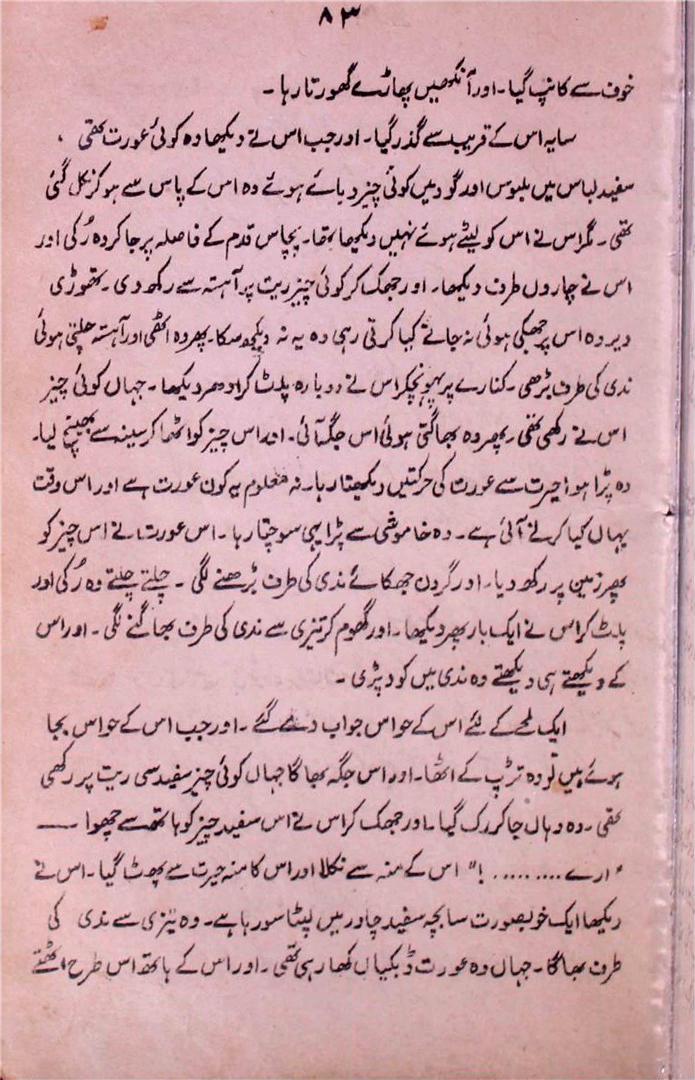 ۸۳
خوف سے کانپ گیا۔ اور آنکھیں پھاڑے گھورتا رہا۔
سایہ اس کے قریب سے گذر گیا۔ اور جب اس نے دیکھا وہ کوئی عورت تھی ۔
سفید لباس میں ملبوس اور گود میں کوئی چیز دبائے ہوئے وہ اس کے پاس سے ہو کر نکل گئی
تھی۔ مگر اس نے اس کو لیٹے ہوئے نہیں دیکھا تھا۔ پچاس قدم کے فاصلہ پر جا کر وہ رُکی اور
اس نے چاروں طرف دیکھا۔ اور جھک کر کوئی چیز ریت پر آہستہ سے رکھ دی۔ تھوڑی
دیر وہ اس پر جھکی ہوئی نہ جانے کیا کرتی رہی وہ یہ نہ دیکھ سکا۔ پھر وہ اٹھی اور آہستہ چلتی ہوئی
ندی کی طرف بڑھی۔ کنارے پر پہونچکر اس نے دوبارہ پلٹ کر ادھر دیکھا۔ جہاں کوئی چیز
اس نے رکھی تھی۔ پھر وہ بھاگتی ہوئی اس جگہ آئی۔ اور اس چیز کو اٹھا کر سینہ سے بھینچ لیا۔
وہ پڑا ہوا حیرت سے عورت کی حرکتیں دیکھتا رہا۔ نہ معلوم یہ کون عورت ہے اور اس وقت
یہاں کیا کرنے آئی ہے۔ وہ خاموشی سے پڑا یہی سوچتا رہا۔ اس عورت نے اس چیز کو
پھر زمین پر رکھ دیا۔ اور گردن جھکائے ندی کی طرف بڑھنے لگی ۔ چلتے چلتے وہ رُکی اور
پلٹ کر اس نے ایک بار پھر دیکھا۔ اور گھوم کر تیزی سے ندی کی طرف بھاگنے لگی۔ اور اس
کے دیکھتے ہی دیکھتے وہ ندی میں کود پڑی ۔
ایک لمحے کے لئے اس کے حواس جواب دے گئے۔ اور جب اس کے حواس بجا
ہوئے ہیں تو وہ تڑپ کے اٹھا۔ اور اس جگہ بھاگا جہاں کوئی چیز سفید سی ریت پر رکھی
تھی۔ وہ وہاں جا کر رک گیا۔ اور جھک کر اس نے اس سفید چیز کو ہاتھ سے چھوا ——
"ارے.........!" اس کے منہ سے نکلا اور اس کا منہ حیرت سے پھٹ گیا۔ اس نے
دیکھا ایک خوبصورت سا بچہ سفید چادر میں لپٹا سو رہا ہے۔ وہ تیزی سے ندی کی
طرف بھاگا۔ جہاں وہ عورت ڈبکیاں کھا رہی تھی۔ اور اس کے ہاتھ اس طرح اٹھتے